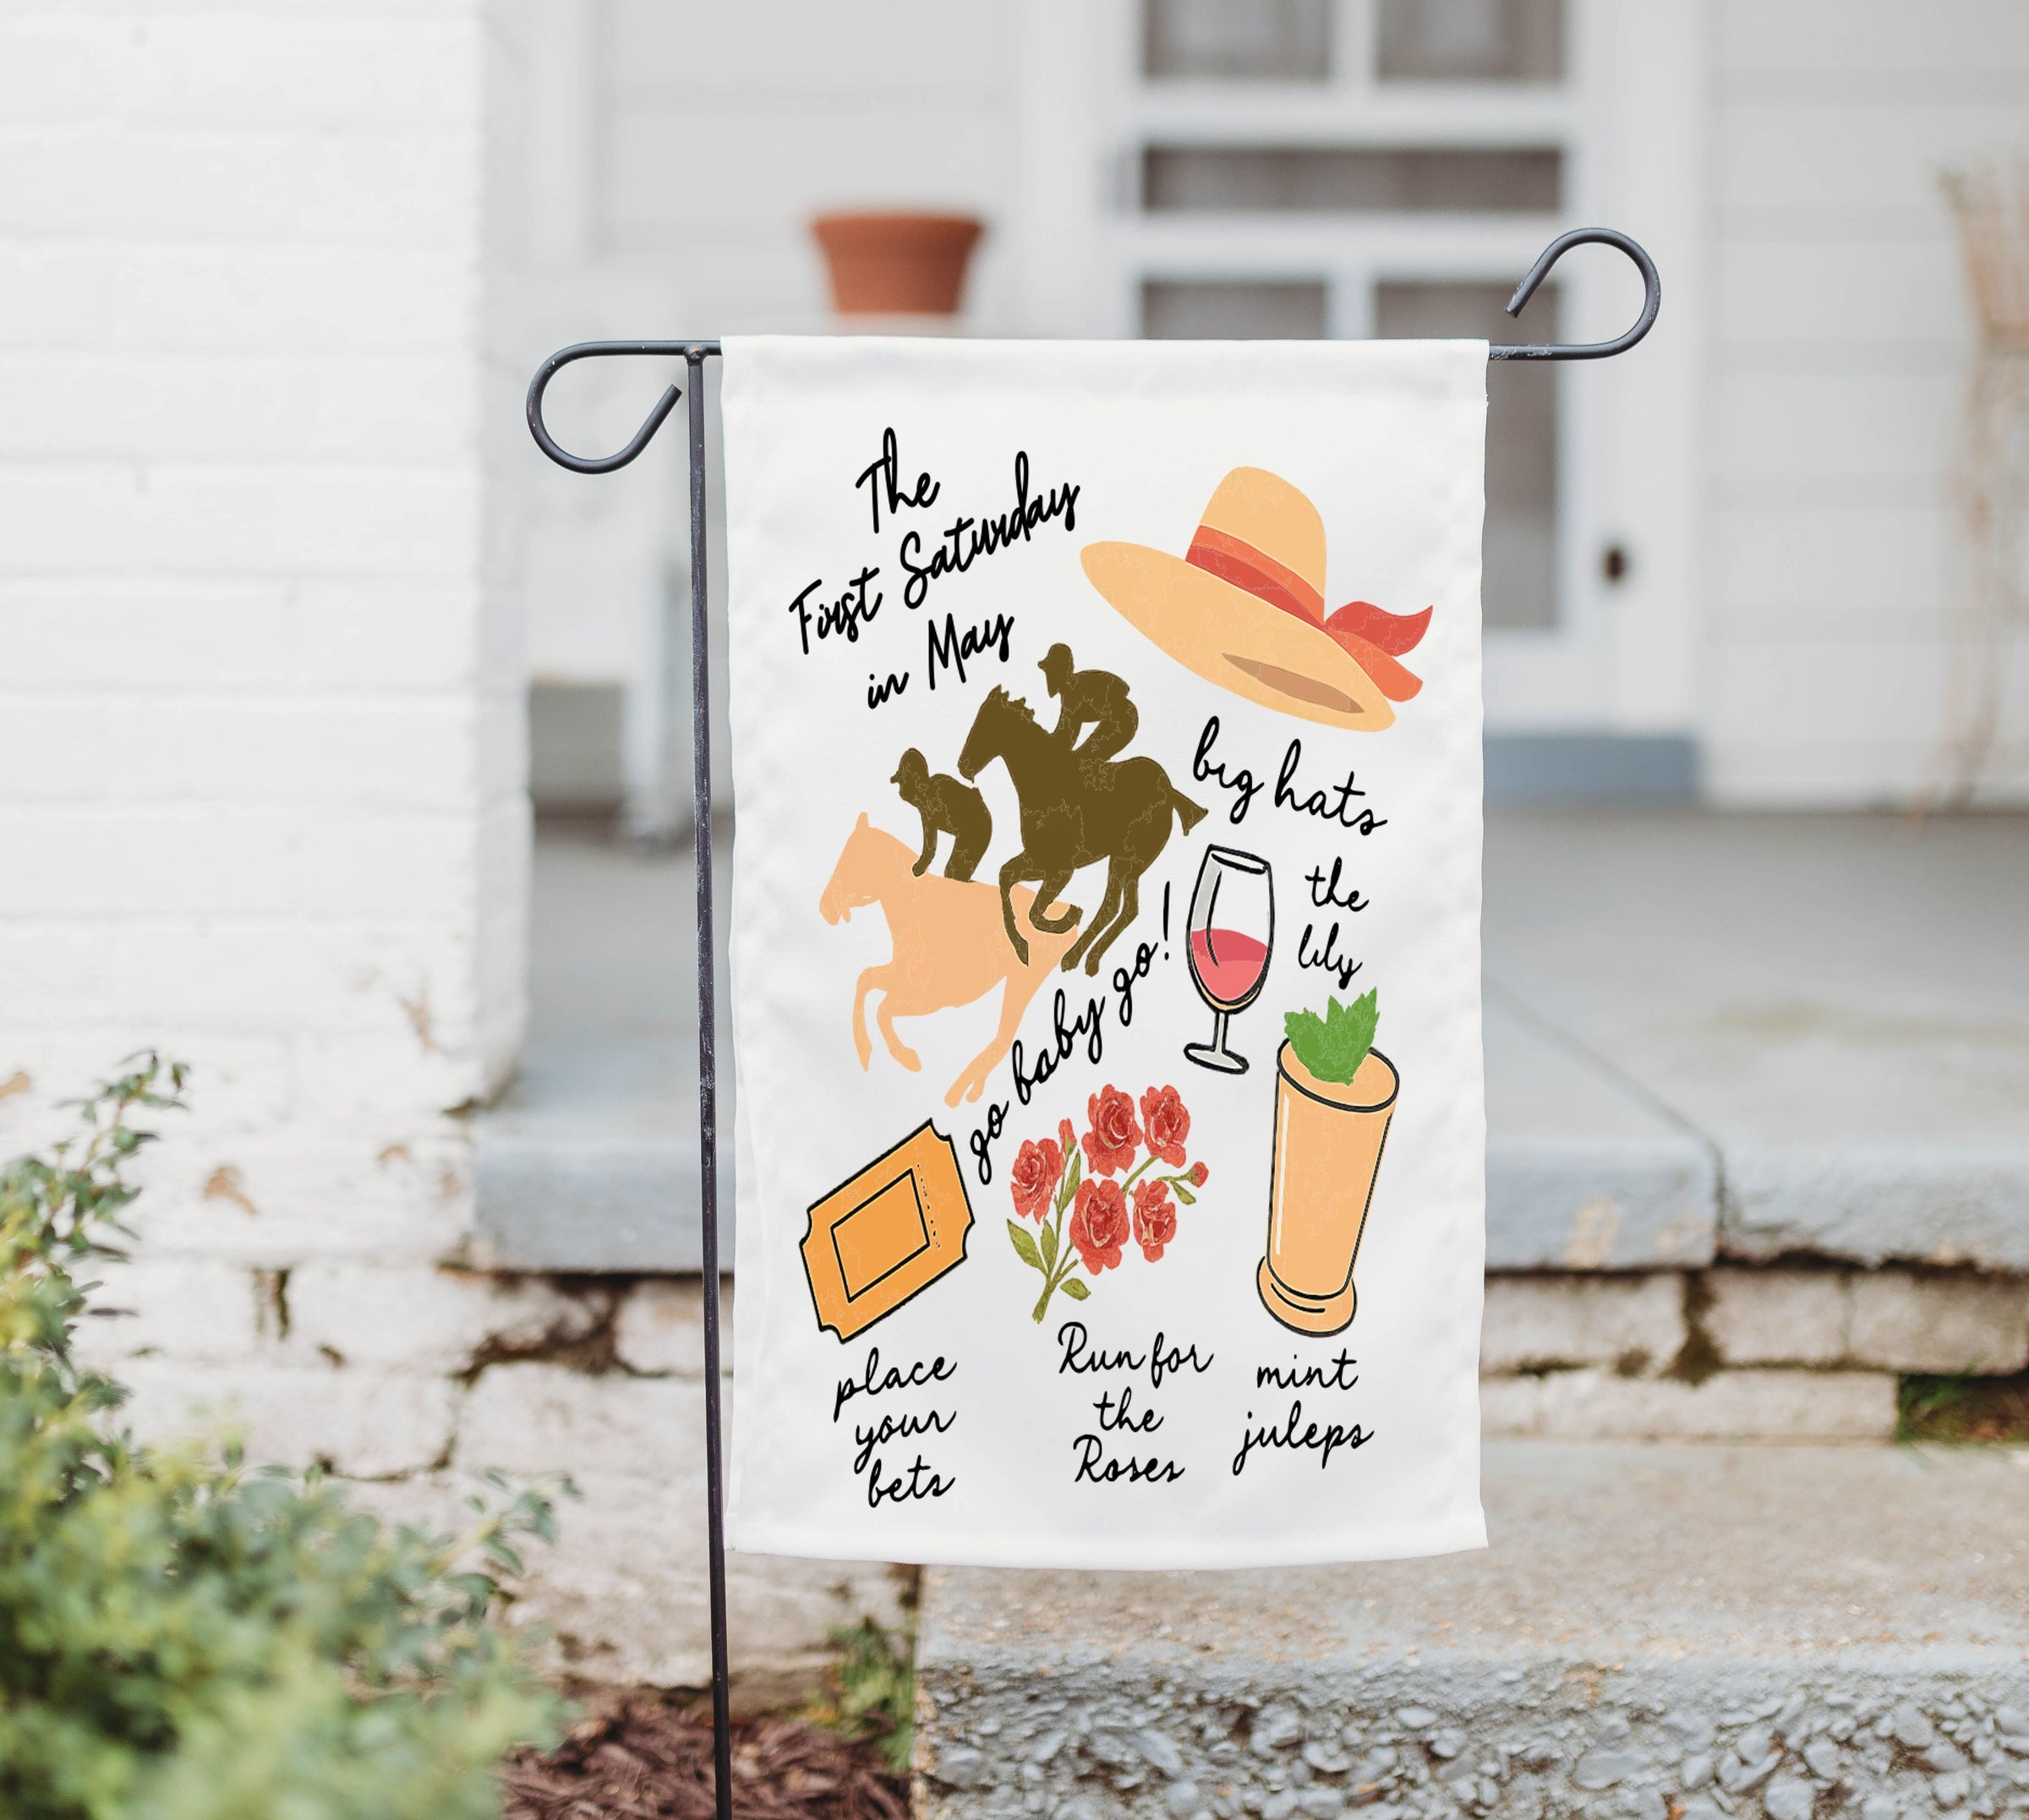 The
First Saturday
in May
big hats
the
lily
go baby go!
place
your
bets
Run for
the
Roses
mint
juleps